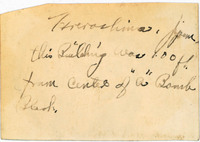 Hiroshima, Japan
this Building was 100 ft
from center of "A" Bomb
Blast.